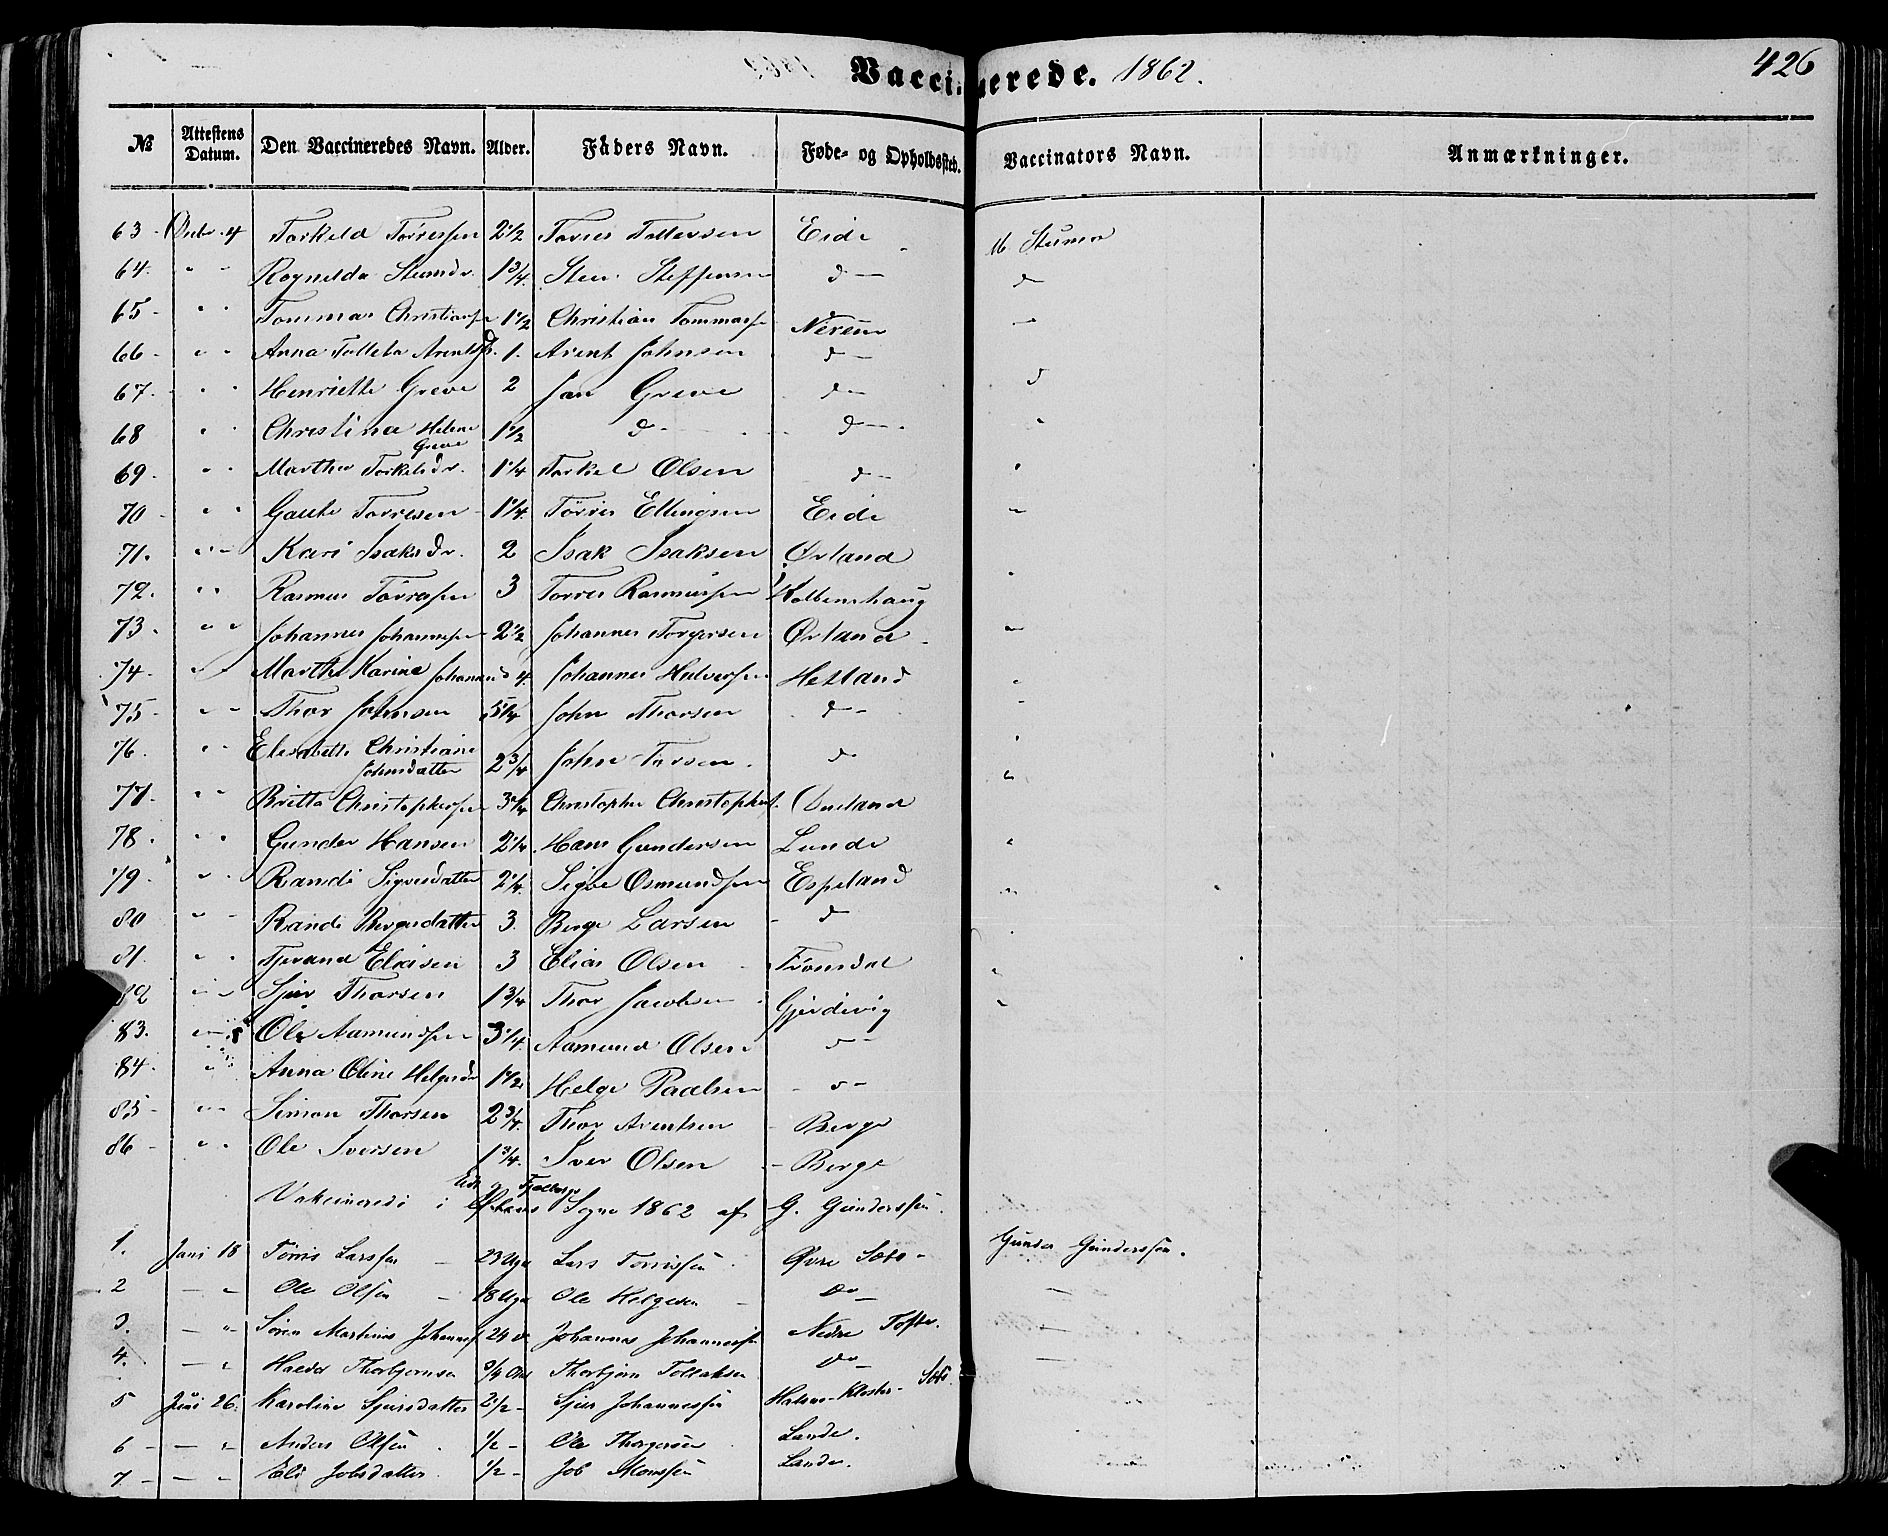 Vaccinerede. 1862.
426
№ Attestens Datum. Den Vaccineredes Navn. Alder. Faders Navn. Føde- og Opholdssted. Vaccinators Navn. Anmærkninger.
63 - Octbr. 4 Torkeld Torressen 2 1/2 Torres Tollevsen Eide M.
64. " " Steensdr. 1 3/4. Steen Steffensen d — d —
65 - " " Tommas Christians 1 1/2 Christian Tommass —
66 - " " Anna Arentsd. 1. Arent Johnsen d —
67. - " " Henriette Greve 2 Jan Greve d — d
68 " " Christina Helene Greve 1 1/2 d — d — "
69. " " Marthe Torkelsdr. 1 1/4 Torkel Olsen d — "
70 - " " Gaute Torresen 1 1/4. Torres Ellingsen Eide "
71. " " Kari Isaksdr. 2 Isak Isaksen Ørland
72. " " Rasmus Torresen 3 Torres Rasmussen Kolbenshaug "
73. " " Johannes Johannessen 2 1/2 Johannes Torgersen Ørland - "
74. " " Marthe Karine Johannesd 4. Johannes Halversen Hetland "
75 - " " Thor Johnsen John Thorsen d — "
76. " " Elisabeth Christiane Johnsdatter 2 3/4 John Torsen. d "
77. " " Britta Christophersen 3 1/4 Christopher Christophers. "
78. " " Gunder Hansen 2 1/4. Hans Gundersen Lunde "
79. " " Randi Sigvesdatter 2 1/4. Sigve Osmundsen Espeland "
80 " " Randi Bergesdatter 3. Berge Larsen - d "
81. " " Tjerand Eliasen 3 Elias Olsen - "
82 " " Sjur Thorsen 1 3/4 Thor Jacobsen Gjerdevig "
83. " 8 Ole Aamundsen 3 1/4. Aamund Olsen d —
84. " " Anna Oline Helgesdr 1 1/2 Helge Paalsen - d —
85 - " " Simon Thorsen 2 3/4. Thor Arentsen - Berge
86 - " " Ole Iversen 1 3/4. Iver Olsen - Berge
Vakcinerede i Sogne 1862 af G. Gunderssen.
1. Juni 18 Tørris Larssen - 23 Uger Lars Tørrissen Øvre Sæbø - Gunder Gunderssen.
2 — " Ole Olsen - 18 Uger Ole Helgesen - do —
3. — " Søren Martinus Johanness. 24 do Johannes Johannessen Nedre Tofte. —
4. — " Thorbjørnsen 3/4 Aar Thorbjørn Tollaksen do — —
5 Juni 26. Karoline Sjursdatter 2 1/2 - Sjur Johannessen Halsnø-Kloster -
6 - — " Anders Olsen. 1/2 - Ole Thorgersen Lande.
7 - — " Eli Jobsdatter. 1/2 - Job Monssen Lande.